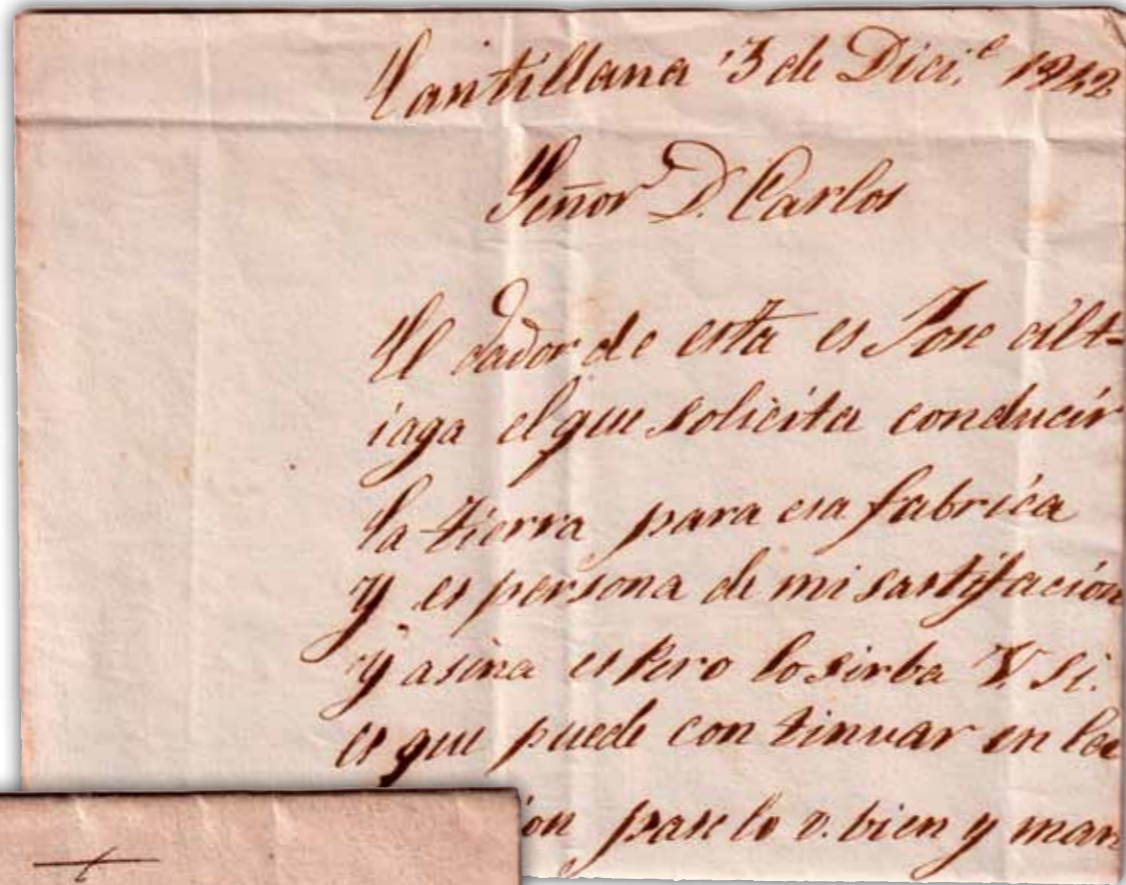 Cantillana 3 de Dici.e 1842
Señor D. Carlos
El dador de esta es Jose Alt=
iaga el que solicita conducir
la tierra para esa fabrica
y es persona de mi sastifación
y asina espero lo sirba V. si
es que puede con tinuar en la
ón pase lo v. bien y man